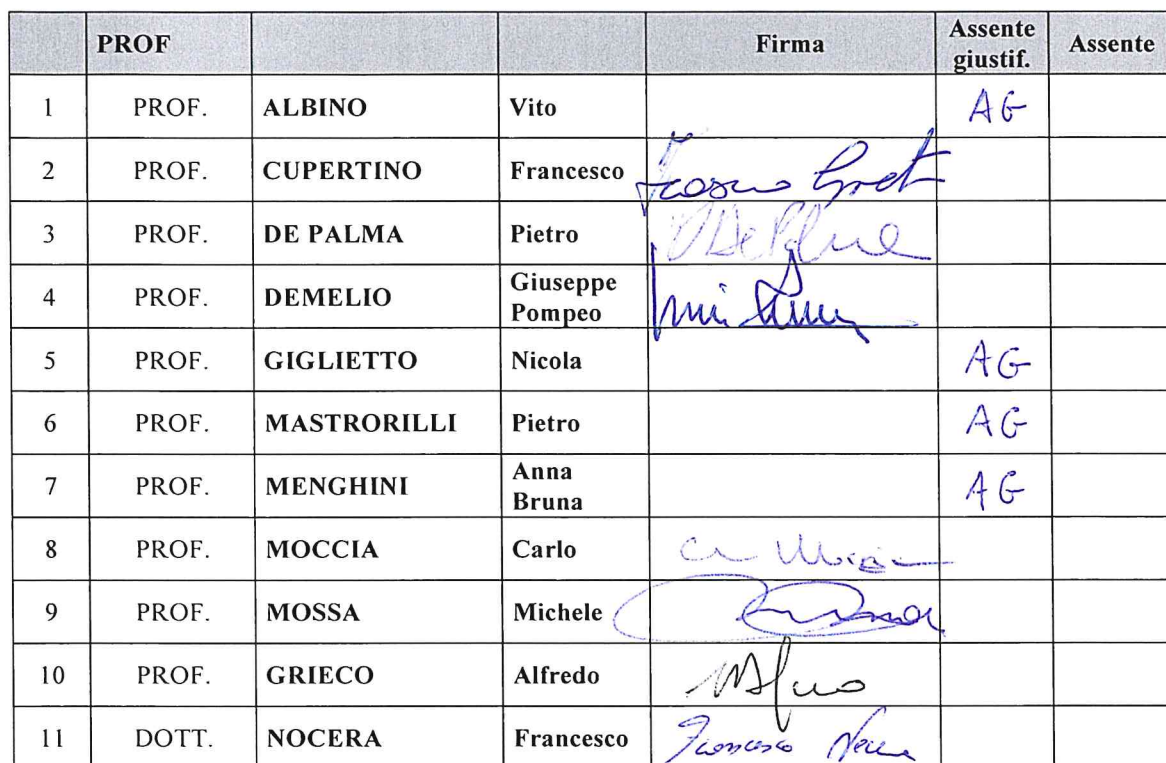 PROF Firma Assente giustif. Assente
1 PROF. ALBINO Vito AG
2 PROF. CUPERTINO Francesco
3 PROF. DE PALMA Pietro De Palma
4 PROF. DEMELIO Giuseppe Pompeo
5 PROF. GIGLIETTO Nicola AG
6 PROF. MASTRORILLI Pietro AG
7 PROF. MENGHINI Anna Bruna AG
8 PROF. MOCCIA Carlo
9 PROF. MOSSA Michele
10 PROF. GRIECO Alfredo
11 DOTT. NOCERA Francesco Francesco